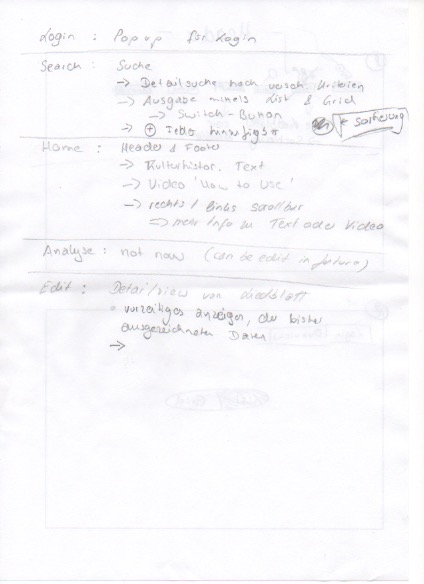 Login : Popup für Login
Search : Suche
→ Detailsuche nach versch. Kriterien
→ Ausgabe mittels List & Grid
→ Switch-Button
→ + Text hinzufügbar
* Sortierung
Home : Header & Footer
→ Kulturhistor. Text
→ Video 'How to Use'
→ rechts / links scrollbar
⇒ mehr Info zu Text oder Video
Analyse : not now (can be edit in future)
Edit : Detailview von Liedblatt
• anzeigen, der bisher
ausgezeichneten Daten
→